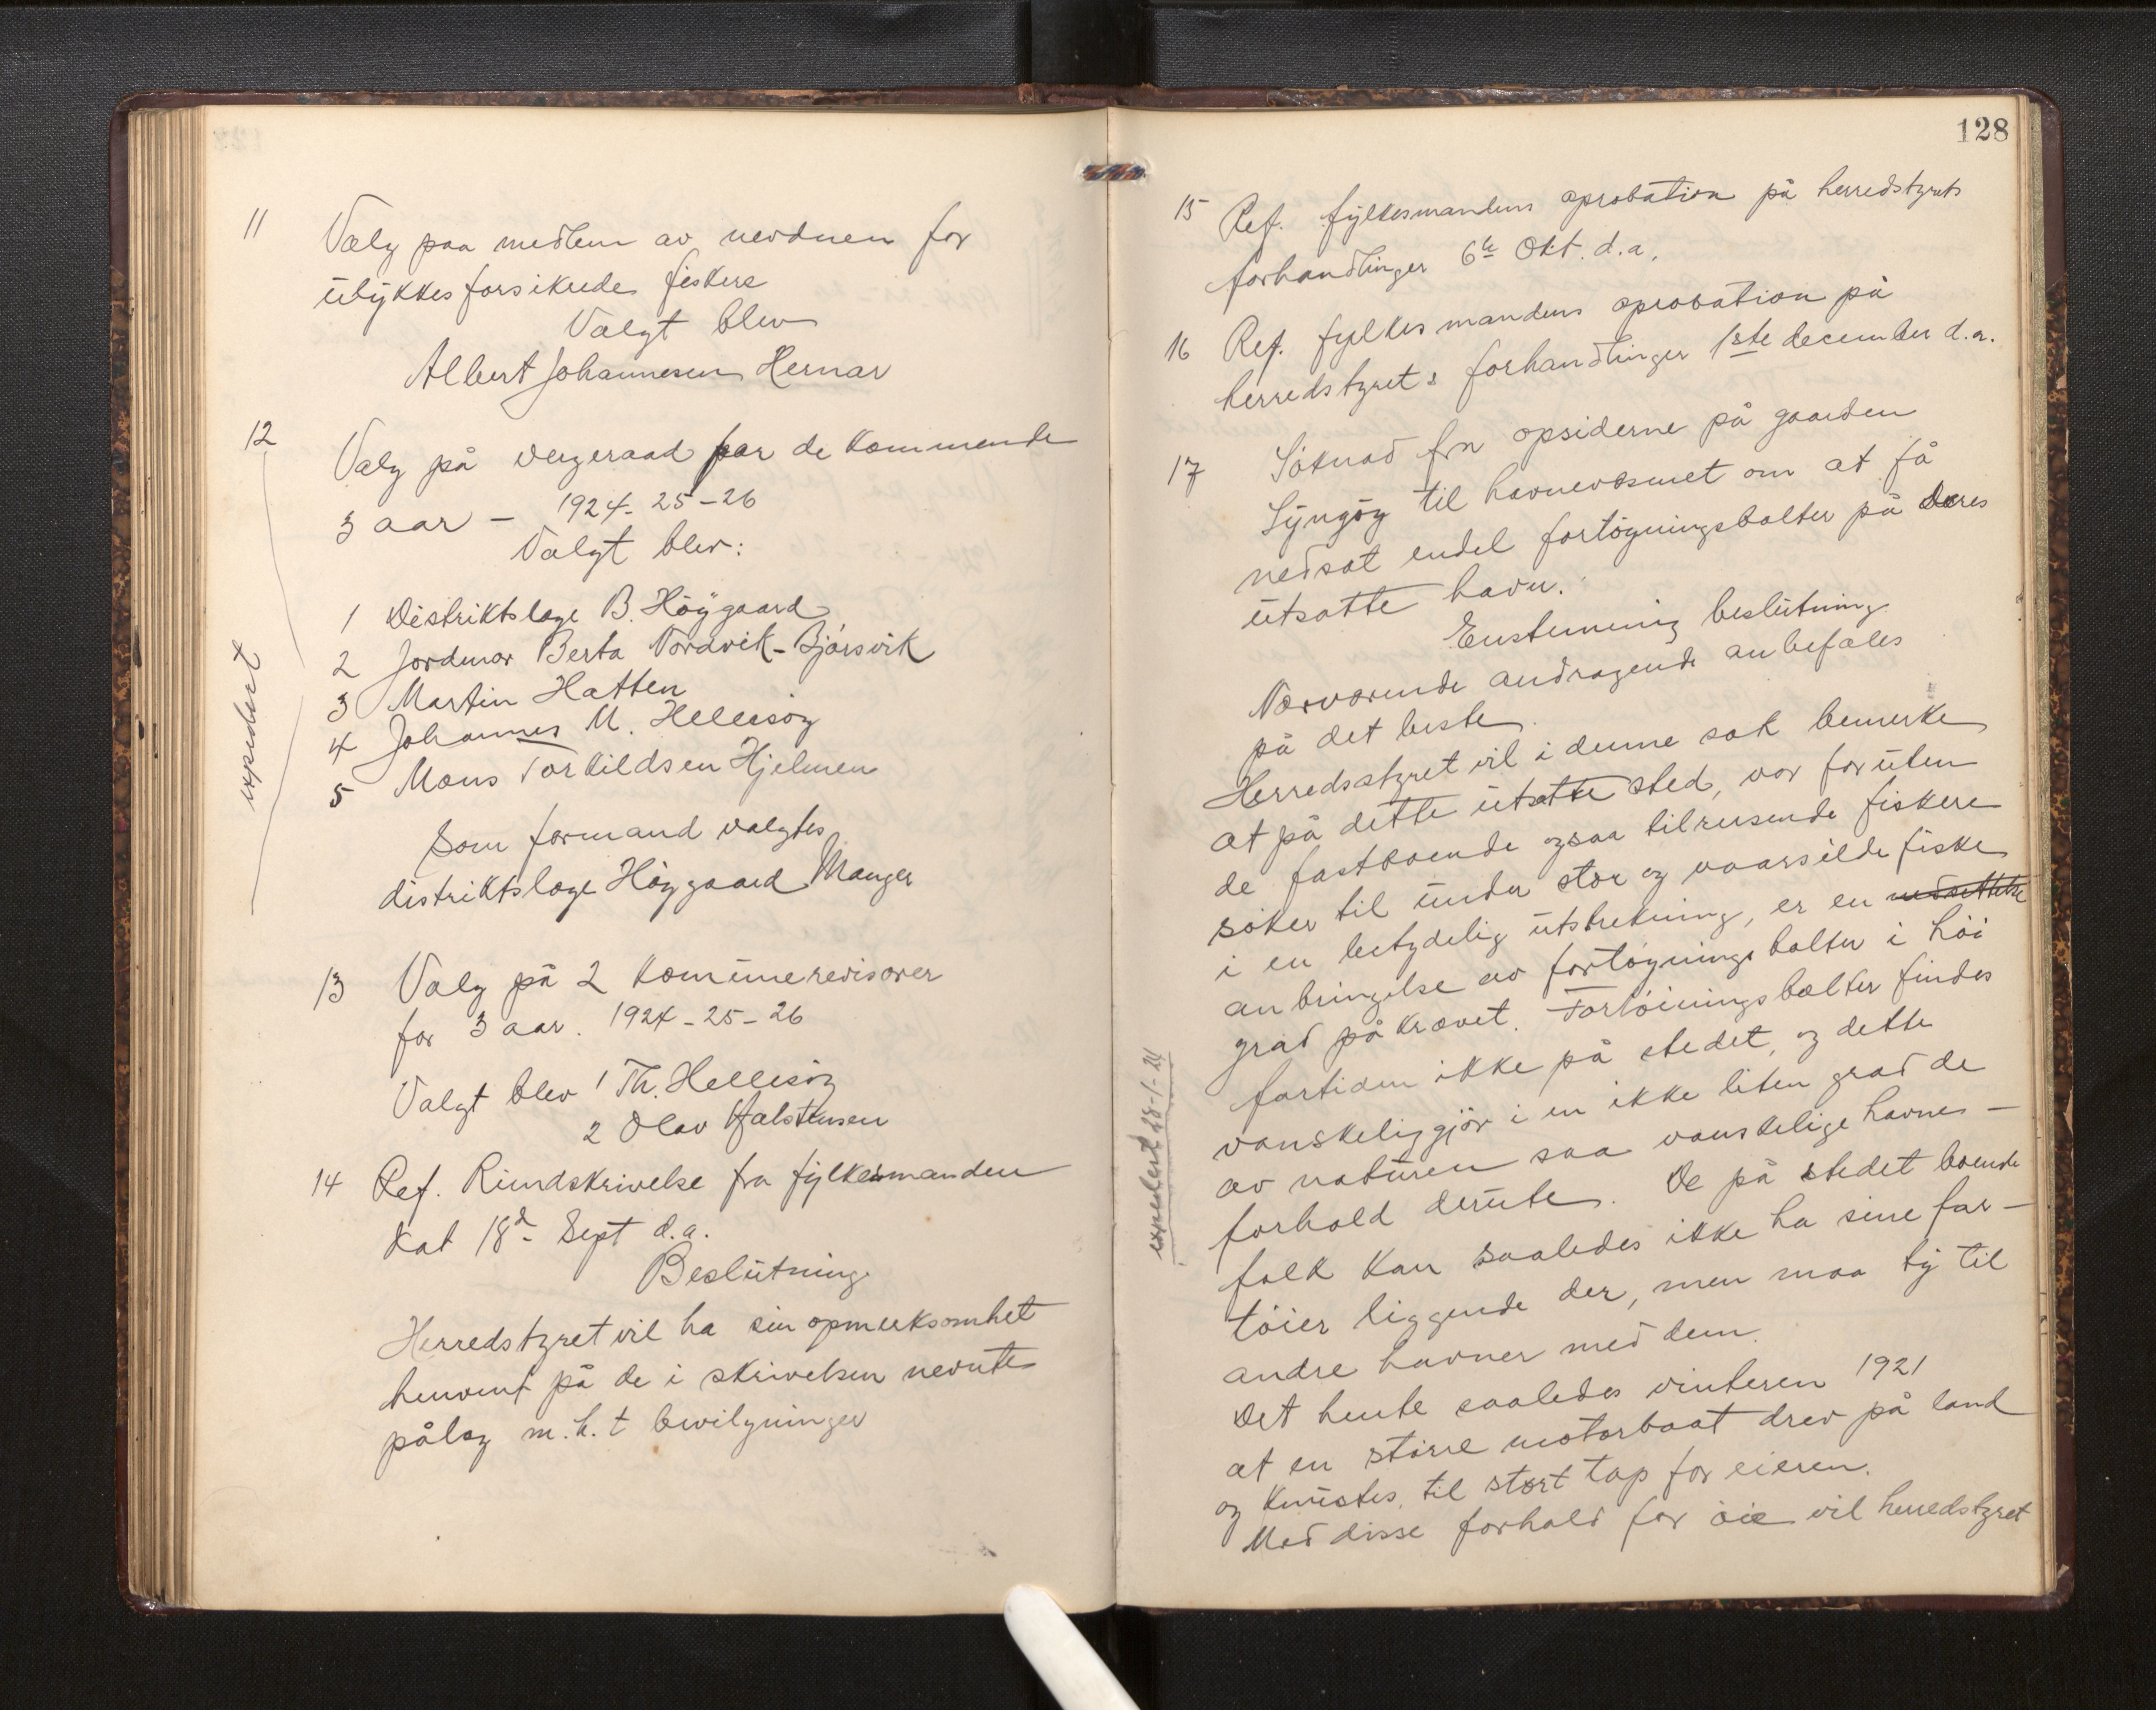 11 Valg paa medlem av nevdnen for
ulykkesforsikrede fiskere
Valgt blev
Albert Johannesen Hernar
12 Valg på vergeraad for de kommende
3 aar - 1924-25-26
Valgt blev:
1 Distriktslæge B. Höygaard
2 Jordmor Berta Nordvik-Bjørsvik
3 Martin Hatten
4 Johannes M. Hellesöy
5 Mons Torkildsen Hjelmen
expedert
Som formand valgtes
distriktslæge Höygaard Manger
13 Valg på 2 kommunerevisorer
for 3 aar. 1924-25-26
Valgt blev 1 Th. Hellesöy
2 Olav Halstensen
14 Ref. Rundskrivelse fra fylkesmanden
dat 18d Sept d.a.
Beslutning
Herredstyret vil ha sin opmerksomhet
henvent på de i skrivelsen nevnte
pålæg m.h.t bevilgninger
128
15 Ref. fylkesmandens aprobation på herredstyrets
forhandlinger 6te Okt. d.a.
16 Ref. fylkesmandens aprobation på
herredstyrets forhandlinger 1ste december d.a.
17 Söknad fra opsiderne på gaarden
Syngöy til havnevæsenet om at få
nedsat endel fortögningsbolter på deres
utsatte havn.
Enstemmig beslutning
Nærværende andragende anbefales
på det beste.
Herredsstyret vil i denne sak bemerke
at på dette utsatte sted, vor foruten
de fastboende ogsaa tilreisende fiskere
söker til under stor og vaarsildefiske
i en betydelig utstrekning, er en nedsettelse
anbringelse av fortögnings bolter i höi
grad påkrævet. Fortöiningsbolter findes
fortiden ikke på stedet, og dette
vanskeliggjör i en ikke liten grad de
av naturen saa vanskelige havne-
forhold derute. De på stedet boende
folk kan saaledes ikke ha sine far-
töier liggende der, men maa ty til
andre havner med dem.
Det hente saaledes vinteren 1921
at en större motorbaat drev på land
og knustes, til stort tap for eieren.
Med disse forhold for öie vil herredstyret
expedert 28-1-24